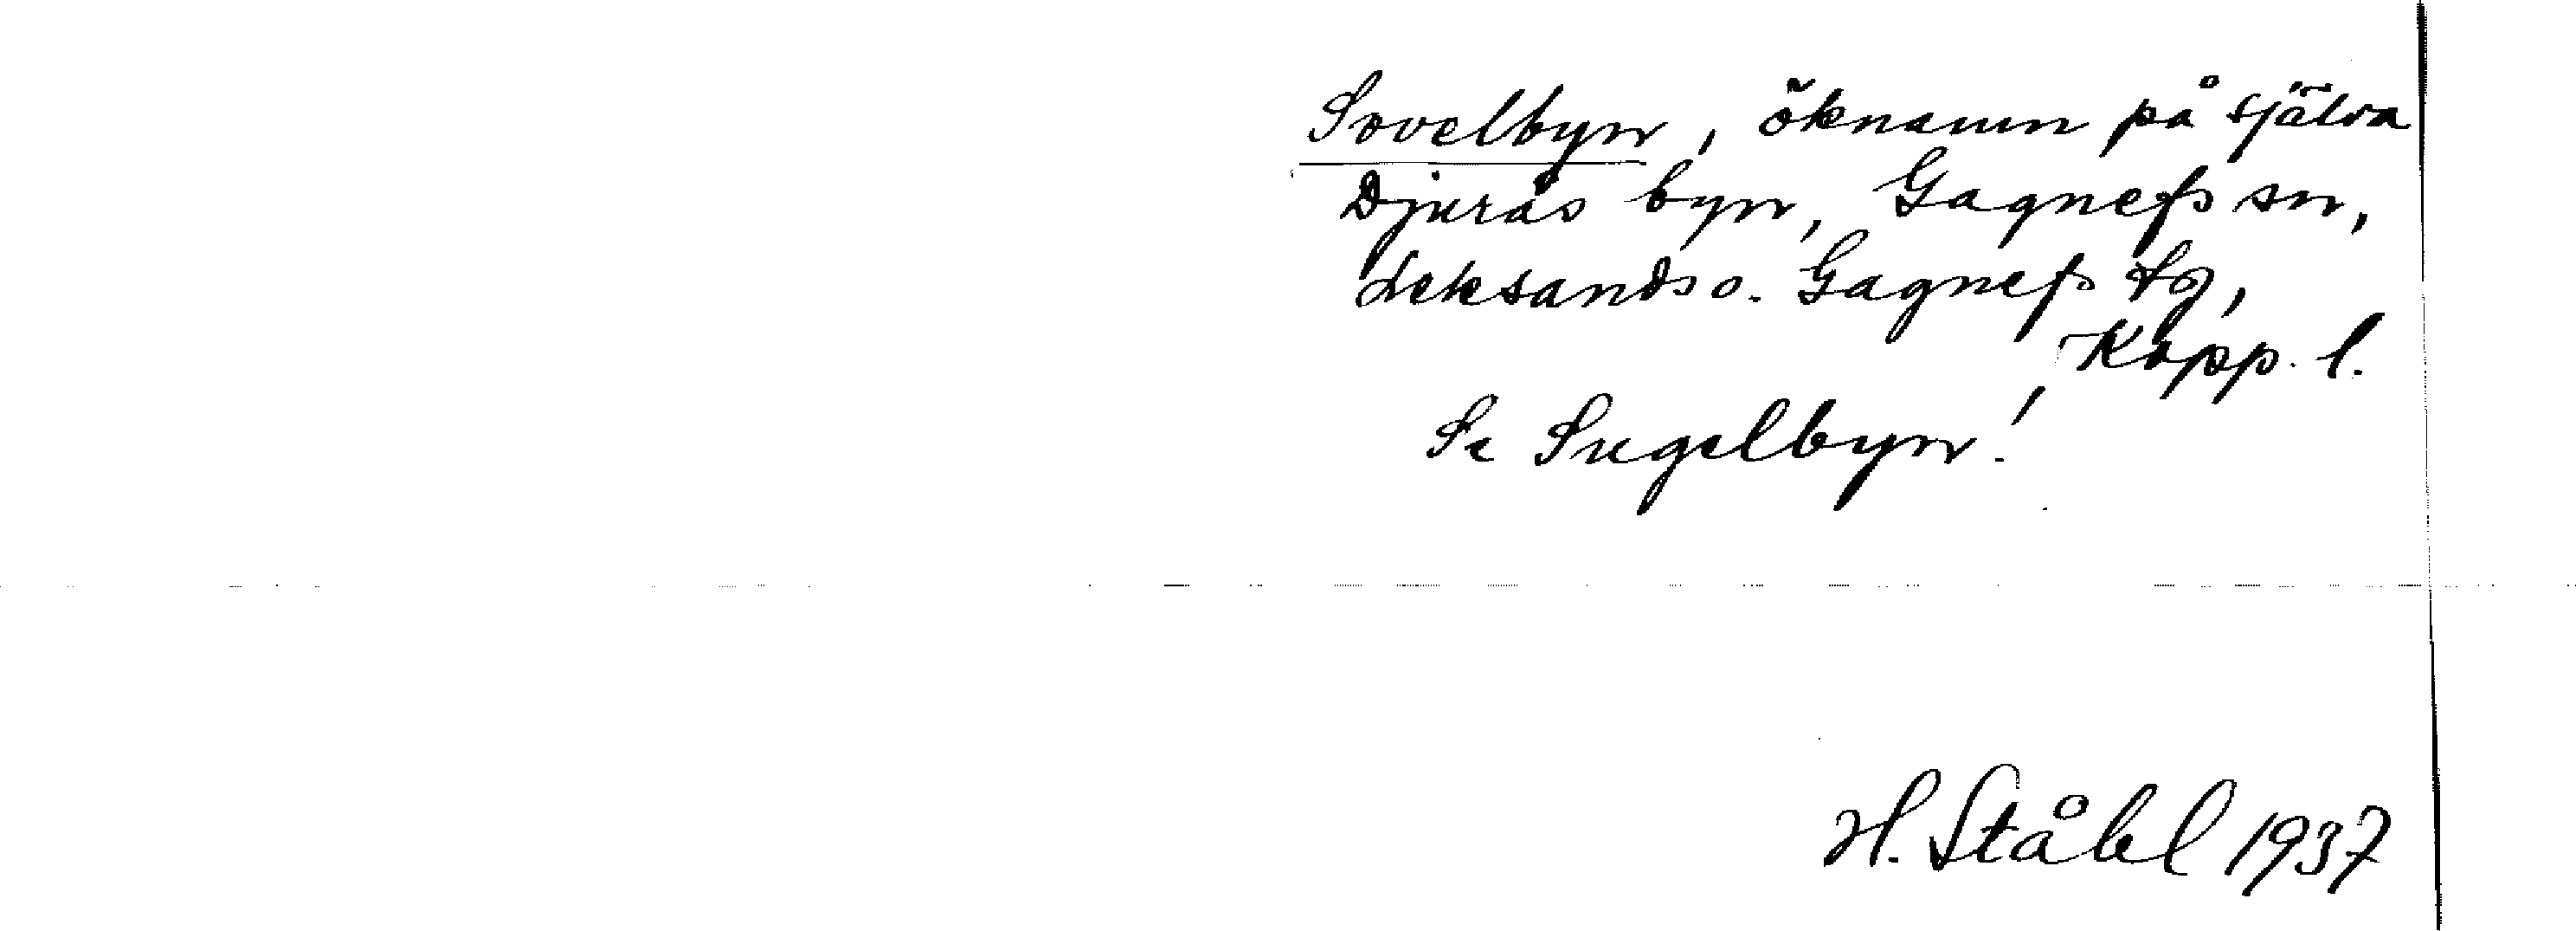 Sovelbyn, öknamn på själva
Djurås byn, Gagnefs sn,
Leksands o. Gagnefs tg,
Kopp. l.
Se Sugelbyn!
H. Ståhl 1937